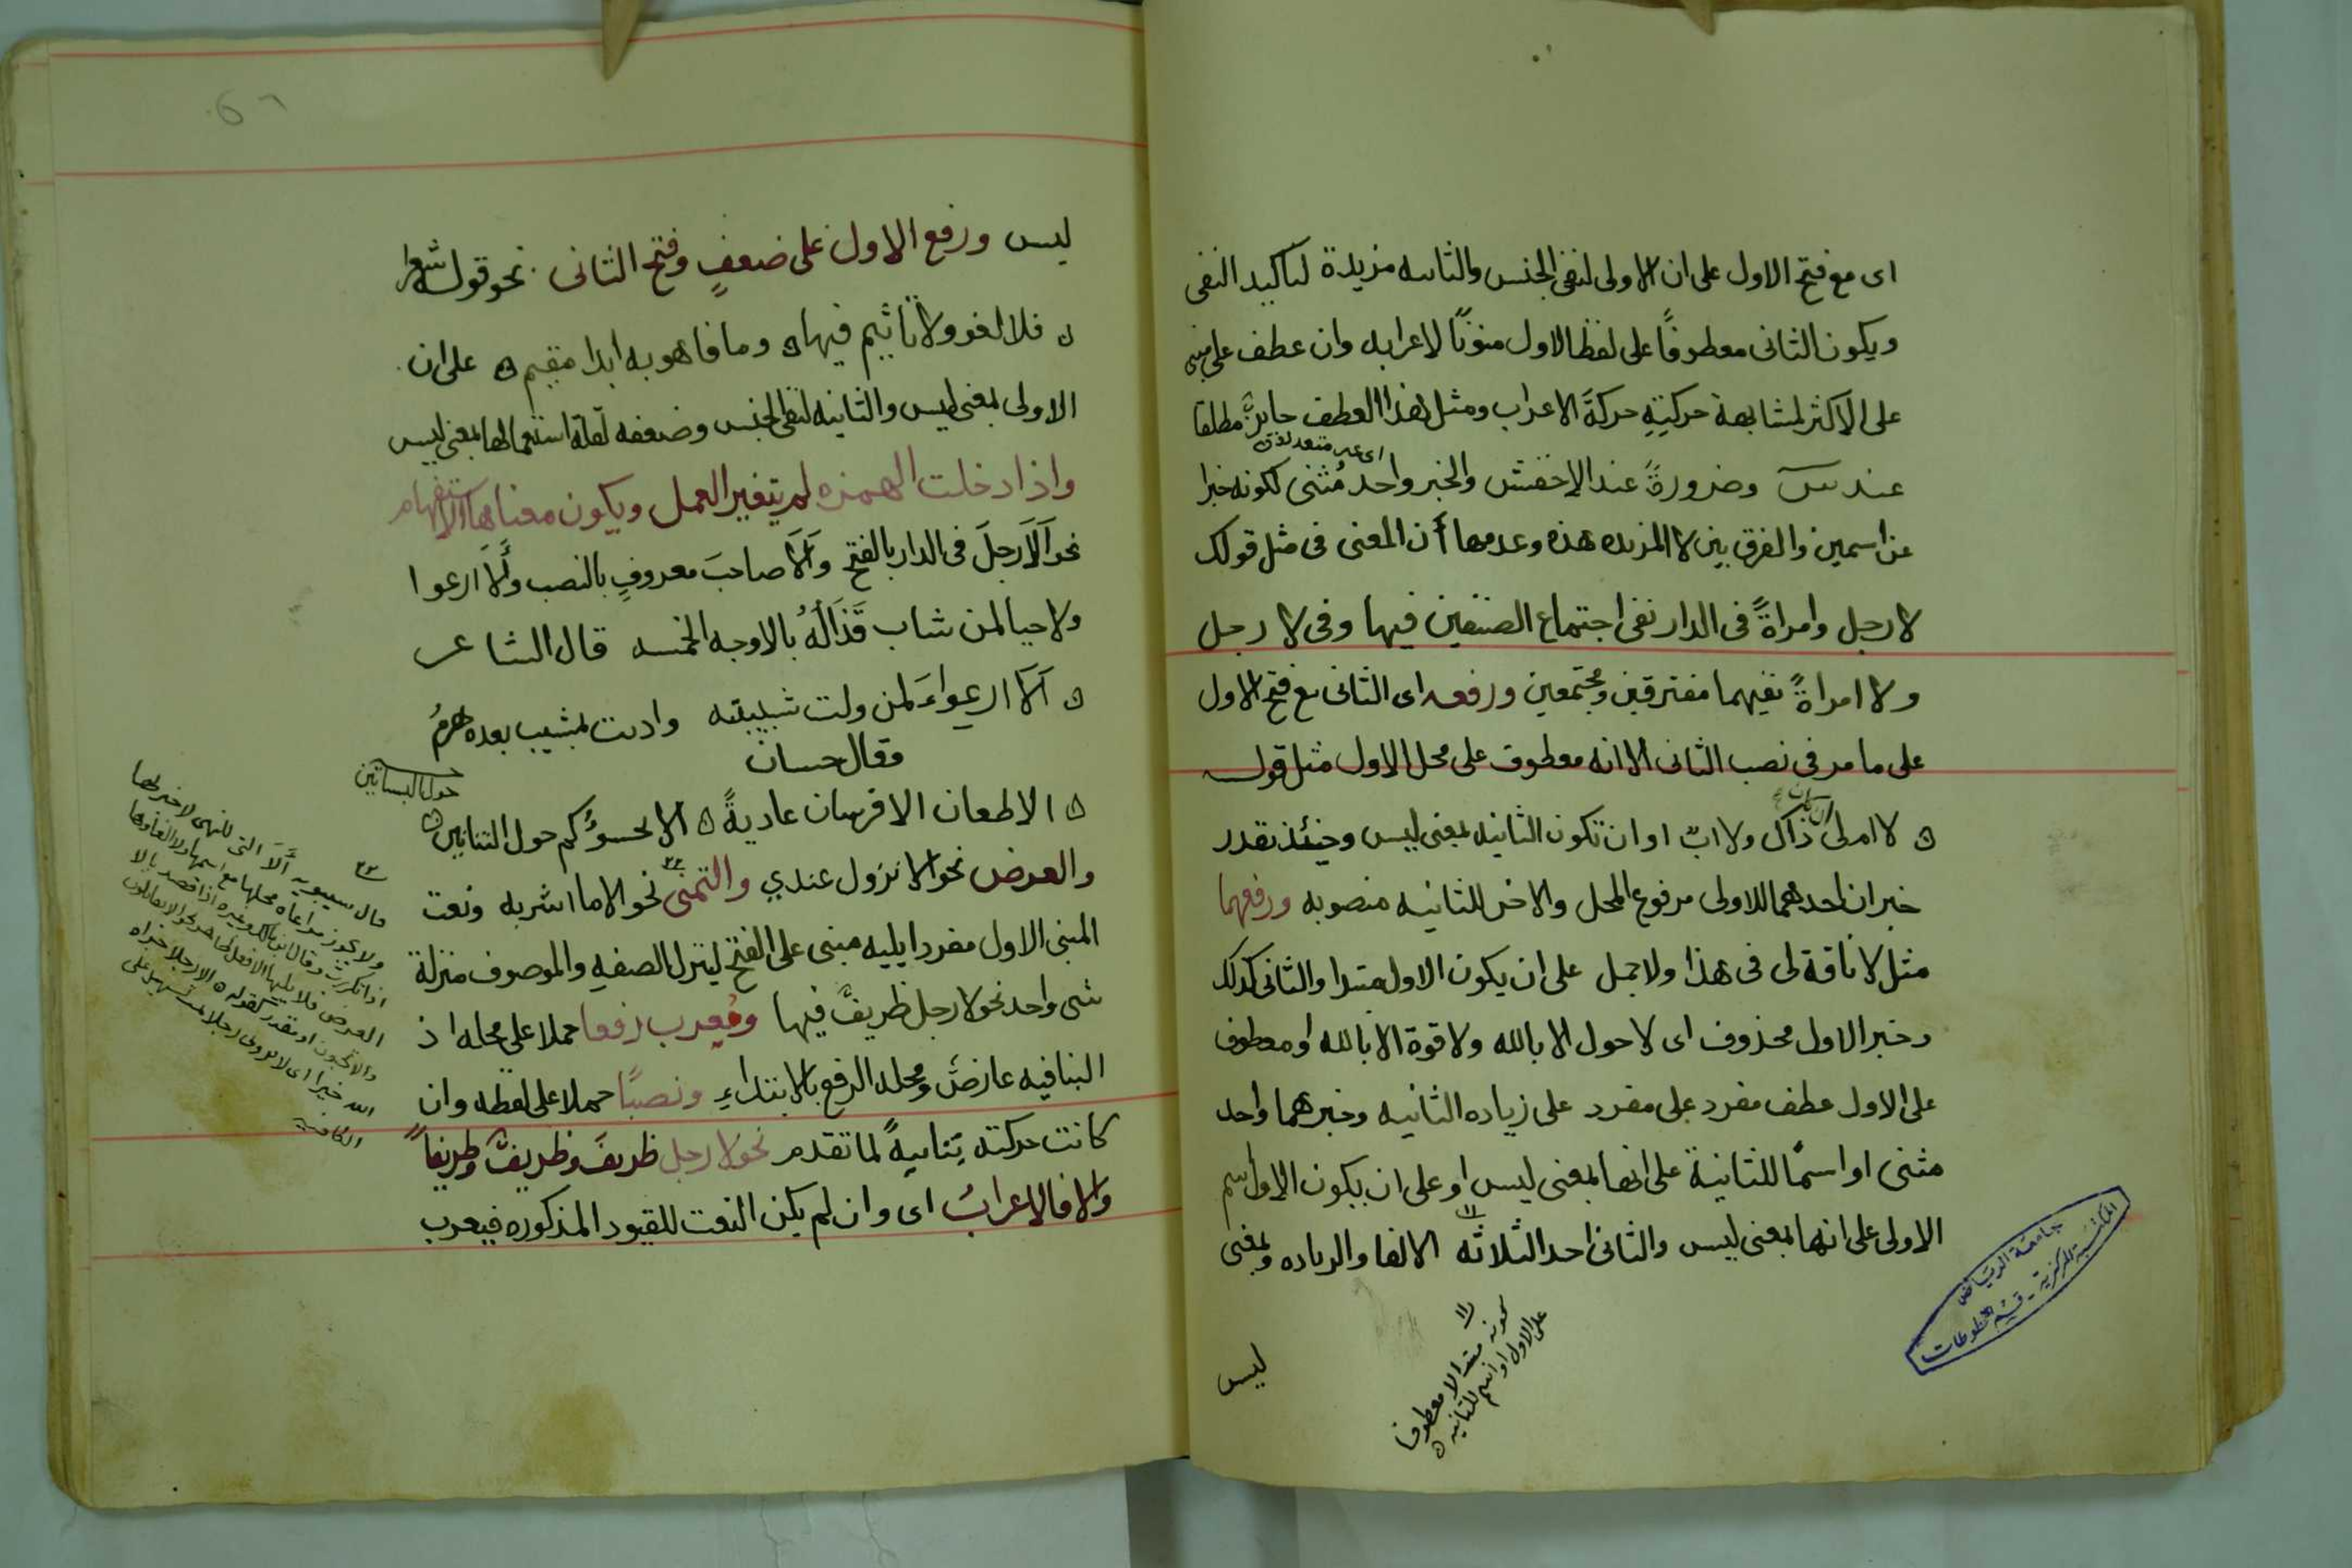 اى مع فتح الاول على ان الاولى لنفى الجنس والثانيه مزيدة لتاكيد النفى
ويكون الثانى معطوفًا على لفظ الاول منونًا لاعرابه وان عطف على مبنى
على الاكثر لمشابهة حركتِهِ حركةَ الاعراب ومثل هذا العطف جايزٌ مطلقا
اى غير متعدد لفظه
عند س وضرورةً عند الاخفش والخبر واحد مُثنى لكونه خبرا
عن اسمين والفرق بين لا المزيده هذه وعدمها أن المعنى فى مثل قولك
لا رجل وامراةً فى الدار نفى اجتماع الصنفين فيها وفى لا رجل
ولا امراةً نفيهما مفترقين ومجتمعين ورفعه اى الثانى مع فتح الاول
على ما مر فى نصب الثانى الا انه معطوف على محل الاول مثل قوله
ان كان
ه لا ام لى ذاك ولا اب او ان تكون الثانيه بمعنى ليس وحينئذ تقدر
خبران احدهما للاولى مرفوع المحل والاخر للثانيه منصوبه ورفعهما
مثل لا ناقة لى فى هذا ولا جمل على ان يكون الاول مبتدا والثانى كذلك
وخبر الاول محذوف اى لا حول الا بالله ولا قوة الا بالله او معطوف
على الاول عطف مفرد على مفرد على زياده الثانيه وخبرهما واحد
مثنى او اسمًا للثانية على انها بمعنى ليس او على ان يكون الاول اسم
الاولى على انها بمعنى ليس والثانى احد الثلاثه الالغا والزياده وبمعنى
كونه مبتدا لا معطوفا
على الاول او اسم للثانيه ه
ليس
جامعة الرياض
المكتبة المركزية - قسم المخطوطات
ليس ورفع الاول على ضعفٍ وفتح الثانى نحو قوله شعرا
ه فلا لغو ولا تاثيم فيها ه وما فاهو به ابدا مقيم ه على ان
الاولى بمعنى ليس والثانيه لنفى الجنس وضعفه لقلة استعمالها بمعنى ليس
واذا دخلت الهمزه لم يتغير العمل ويكون معناها الاستفهام
نحو اَلَا رجلَ فى الدار بالفتح وَاَلَا صاحبَ معروفٍ بالنصب وأَلا ارعوا
ولا حيا لمن شاب قَذَالُهُ بالاوجه الخمسه قال الشاعر
ه اَلَا ارعواءَ لمن ولت شبيبته وادنت بمشيب بعده هرمُ
وقال حسان
حول البساتين
ه الا طعان الا فرسان عاديةً ه الا تحسوُّكم حول التنانير ه
والعرض نحو الا نزول عندي والتمنى نحو الا ما اشربه ونعت
المبنى الاول مفردا يليه مبنى على الفتح لتنزل الصفه والموصوف منزلة
شى واحد نحو لا رجل ظريفٌ فيها ومُعرب رفعا حملا على محله اذ
البنافيه عارضٌ ومحله الرفع بالابتداءِ ونصبًا حملا على لفظه وان
كانت حركته بنائيةً لما تقدم نحو لا رجل ظريفَ وظريفٌ وظريفاً
والا فالاعرابُ اى وان لم يكن النعت للقيود المذكوره فيعرب
قال سيبويه أَلَا التى للتمنى لا خبر لها
ولا يجوز مراعاة محلها مع اسمها ولا الغاوها
اذا تكررت
العرض فلا يليها الا فعل
او مقدر كقوله ه الا رجلا جزاه
الله خيرا اى لا ترونى رجلا
الكافيه